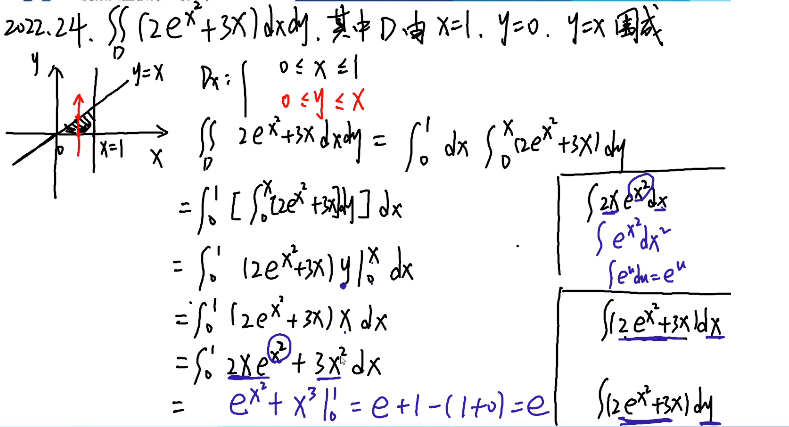 2022.24. ∬_D (2e^{x²}+3x)dxdy. 其中 D 由 x=1. y=0. y=x 围成
y
y=x
0
x=1
x
Dx: { 0≤x≤1
0≤y≤x
∬_D 2e^{x²}+3x dxdy = ∫₀¹ dx ∫₀^x (2e^{x²}+3x) dy
=∫₀¹ [∫₀^x (2e^{x²}+3x)dy] dx
=∫₀¹ (2e^{x²}+3x) y|₀^x dx
=∫₀¹ (2e^{x²}+3x) x dx
=∫₀¹ 2xe^{x²} + 3x² dx
= e^{x²} + x³|₀¹ = e+1-(1+0)=e
∫2xe^{x²}dx
∫e^{x²}dx²
∫e^u du=e^u
∫(2e^{x²}+3x)dx
∫(2e^{x²}+3x)dy